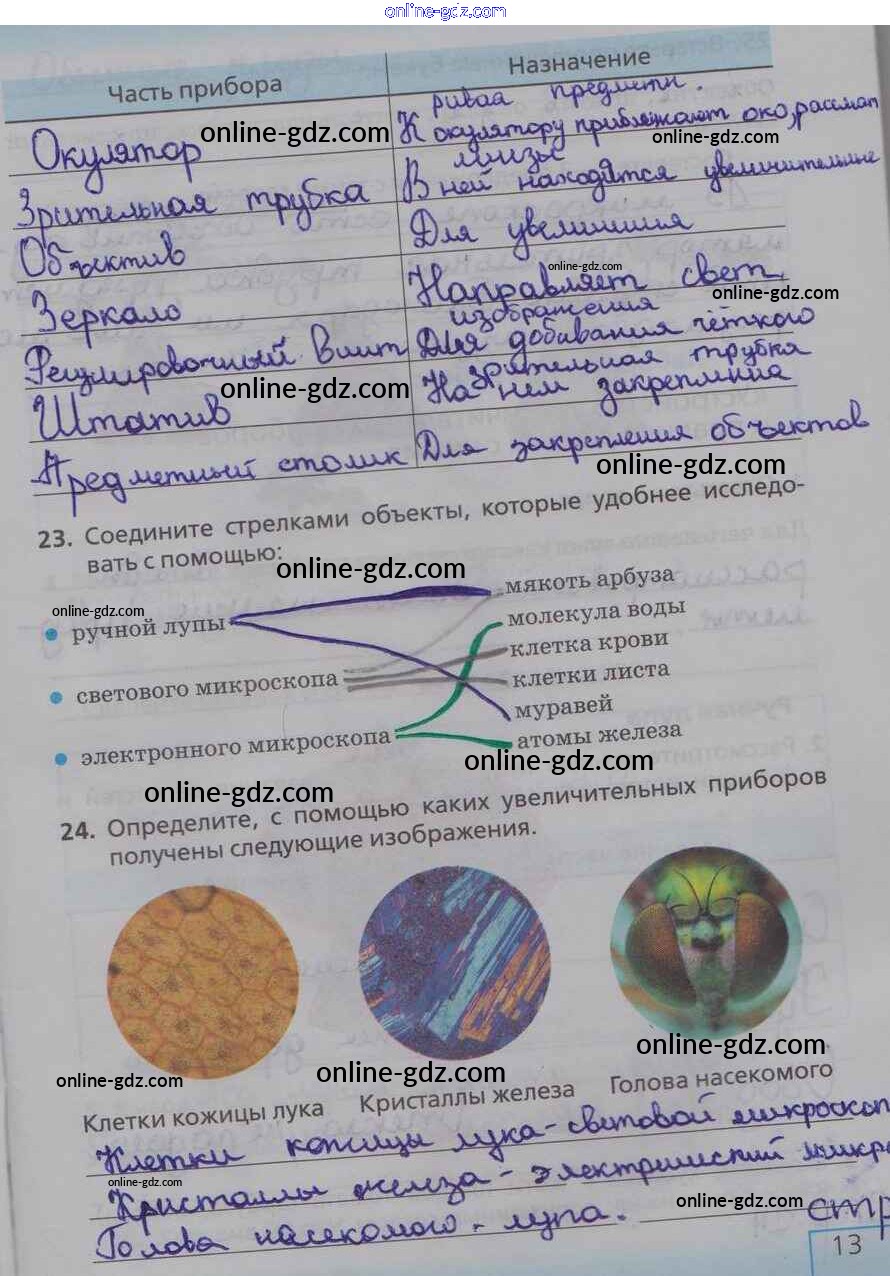 online-gdz.com
Часть прибора
Назначение
Окулятор
К окулятору приближают око, рассмат
ривая предмети.
Зрительная трубка
В ней находятся увеличительние
линзы
Объектив
Для увеличиния
Зеркало
Направляет свет
Регулировочный винт
Для добивания чёткого
изображения
Штатив
На нем закреплина
зрительная трубка
Предметный столик
Для закрепления объектов
online-gdz.com
online-gdz.com
online-gdz.com
online-gdz.com
online-gdz.com
online-gdz.com
23. Соедините стрелками объекты, которые удобнее исследо-
вать с помощью:
online-gdz.com
online-gdz.com
ручной лупы
светового микроскопа
электронного микроскопа
мякоть арбуза
молекула воды
клетка крови
клетки листа
муравей
атомы железа
online-gdz.com
online-gdz.com
24. Определите, с помощью каких увеличительных приборов
получены следующие изображения.
online-gdz.com
online-gdz.com
online-gdz.com
Клетки кожицы лука
Кристаллы железа
Голова насекомого
Клетки кожицы лука - световой микроскоп
online-gdz.com
Кристаллы железа - микро
Голова насекомого - лупа.
online-gdz.com
стр
13